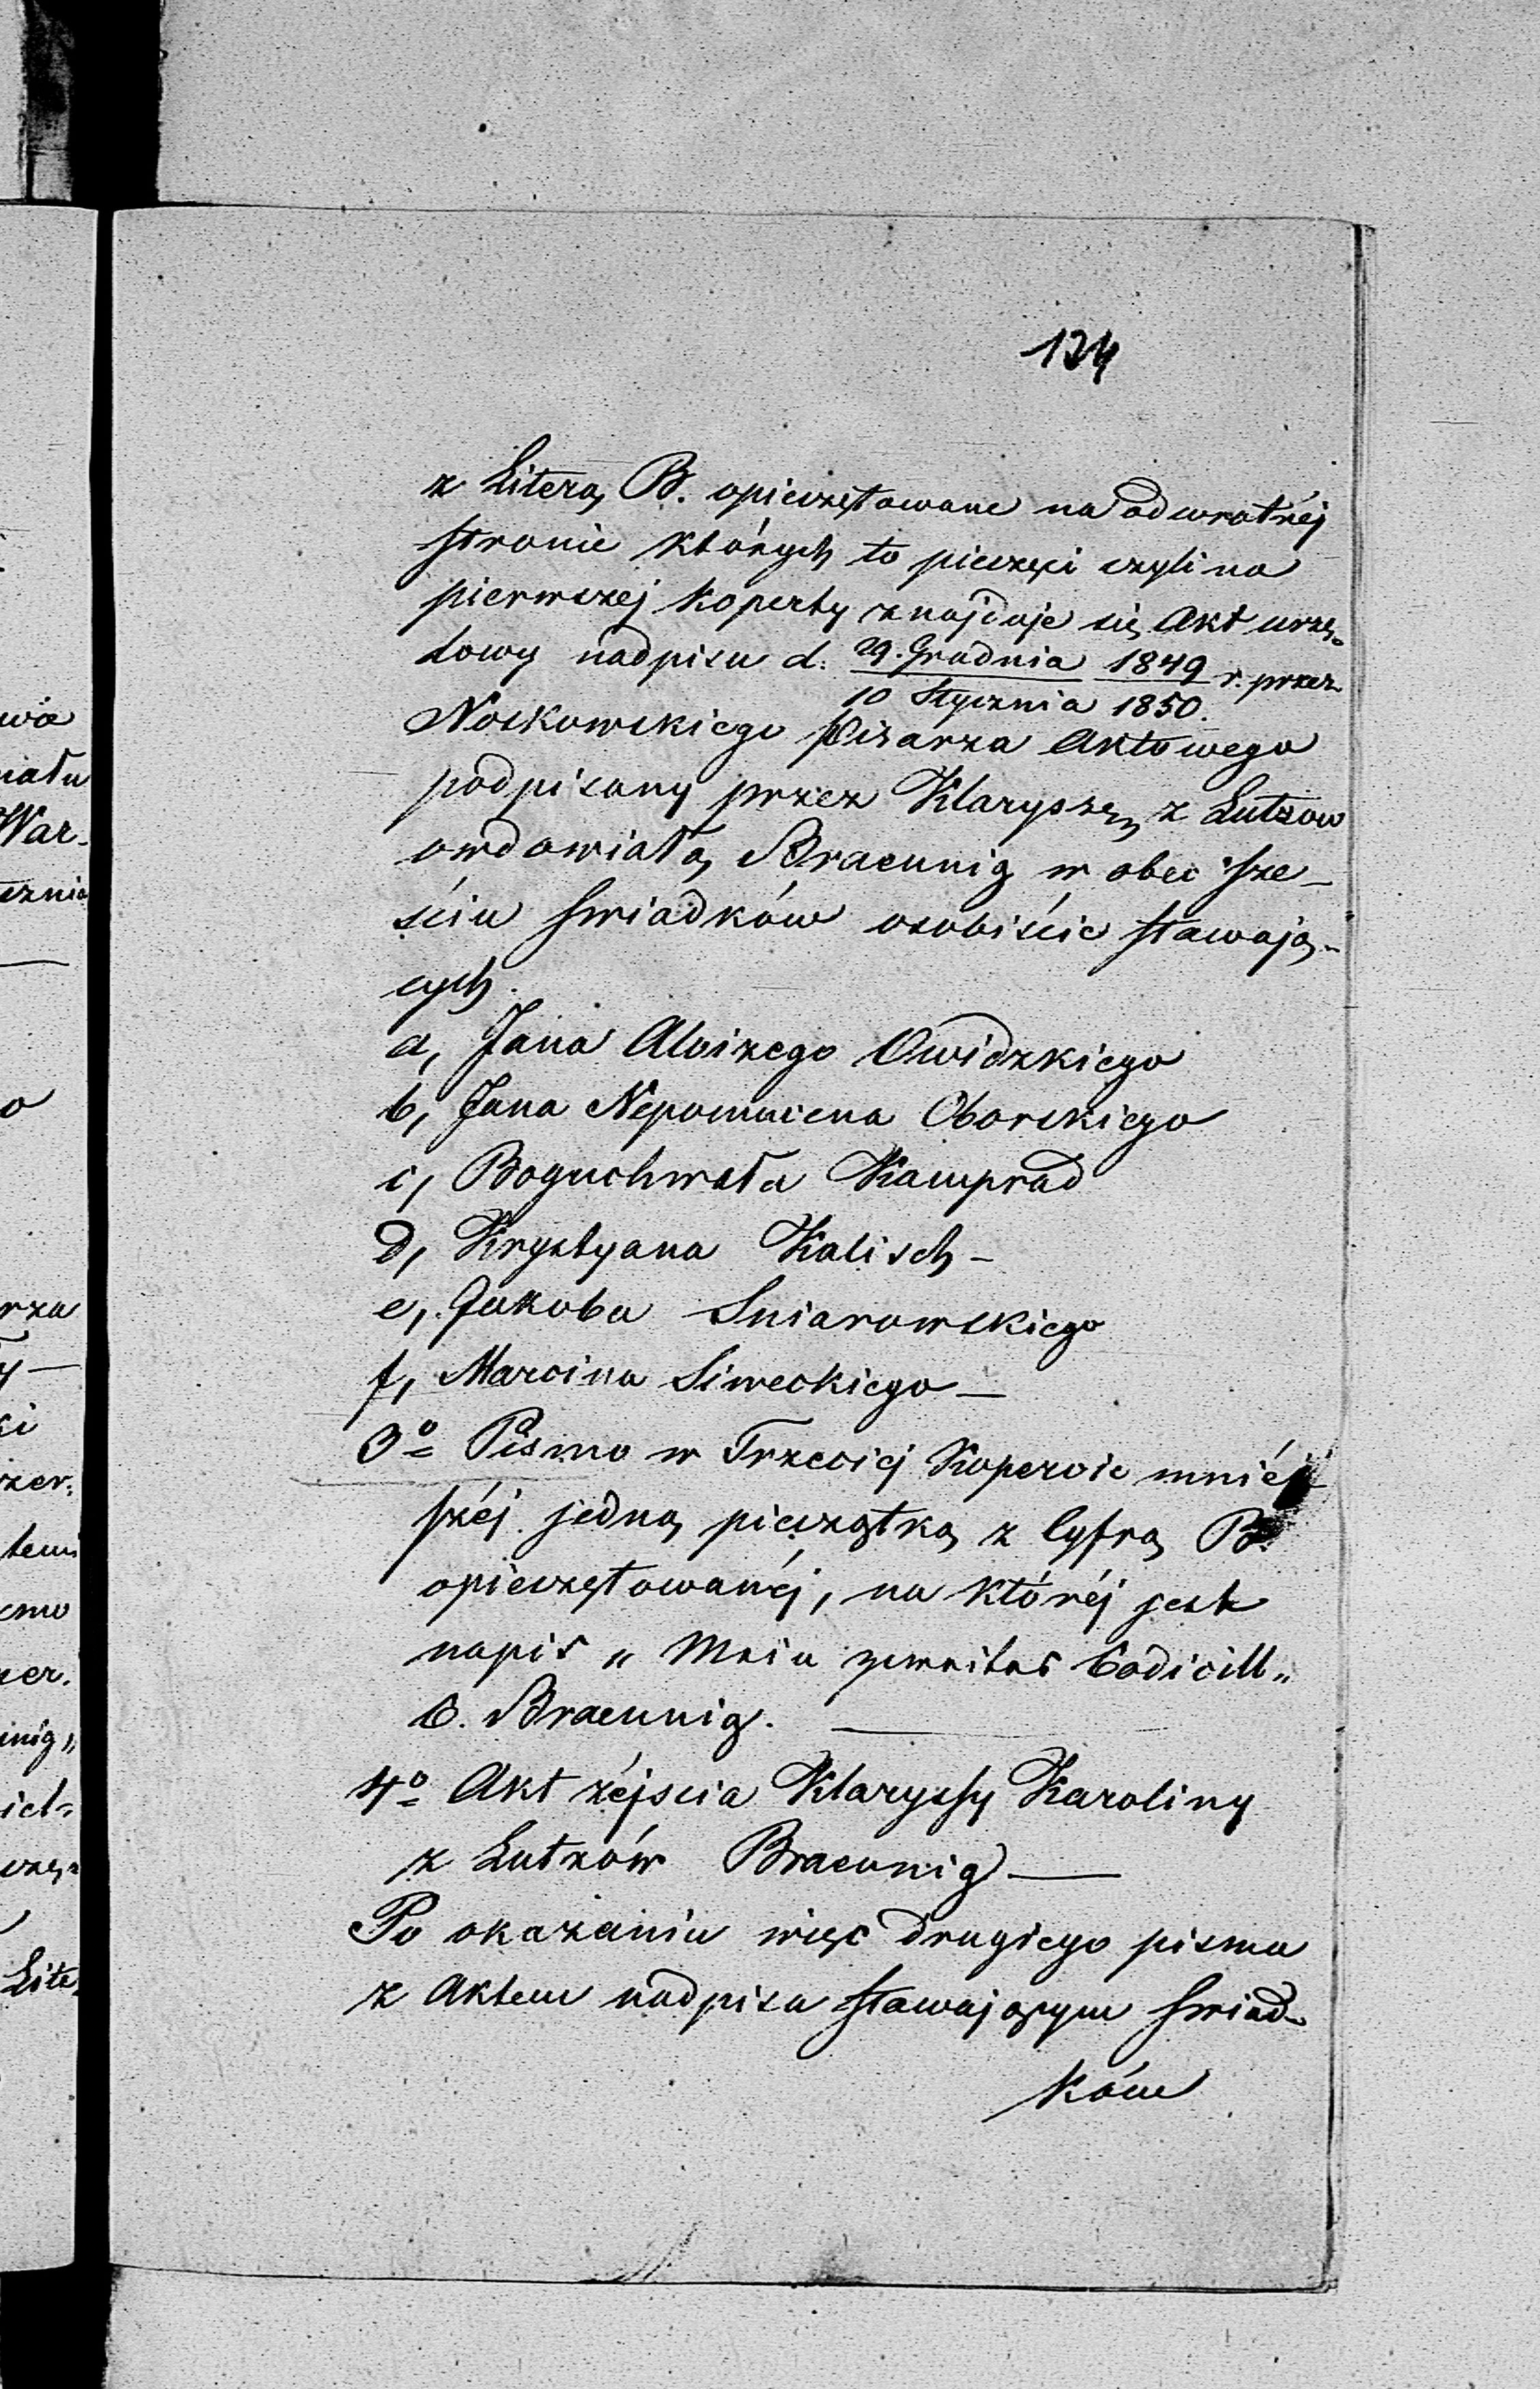 134
z Literą B. opieczętowane na odwrotnéj
stronie których to pieczęci czyli na
pierwszej koperty znajduje się Akt urzę-
dowy nadpisu d. 29. Grudnia 1849 r. przez
10 Stycznia 1850.
Noskowskiego Pisarza Aktowego
podpisany przez Klaryssę z Lutzow
owdowiałą Braeunig w obec sze-
ściu swiadków osobiście stawają-
cych.
a, Jana Aloizego Owidzkiego
b, Jana Nepomucena Oborskiego
c, Boguchwała Kamprad
d, Krystyana Kalisch –
e, Jakoba Sniarowskiego
f, Marcina Siweckiego –
3o Pismo w Trzeciej Kopercie mniéj
széj jedną pieczątką z Cyfrą B
opieczętowanéj, na któréj jest
napis „ Codicill „
C. Braeunig. —
4o Akt zéjscia Klaryssy Karoliny
z Lutzów Braeunig —
Po okazaniu więc drugiego pisma
z Aktem nadpisu stawającym swiad-
kóm
wia
iału
War-
cznia
o
rza
y –
ki
zer.
temi
smo
er.
unig „
iel-
czę-
Lite